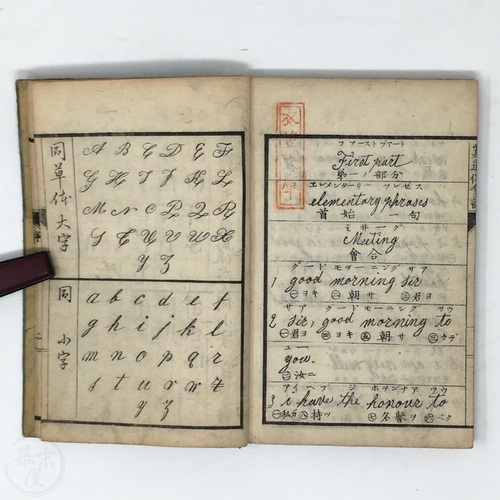 同草体大字
A B C D E F
G H I J K L
M N O P Q R
S T U V W X
Y Z
同 小字
a b c d e f
g h i j k l
m n o p q r
s t u v w x
y z
ファーストプァート
First part
第一ノ部分
エレメンターリー フレセス
elementary phrases
首始 一句
ミーチング
Meeting
會合
グードモヲーニング サア
1 good morning sir
㊀ヨキ ㊁朝サ ㊂君ヨ
サア グードモーニング ツウ
2 sir, good morning to
㊀君ヨ ㊃ヨキ ㊄朝サ
ユー
you.
㊁汝ニ
アイ ハーブ ジ ホヲンナア ツウ
3 i have the honour to
㊀私カ ㊇持ツ ㊆名譽ヲ
幕末屋